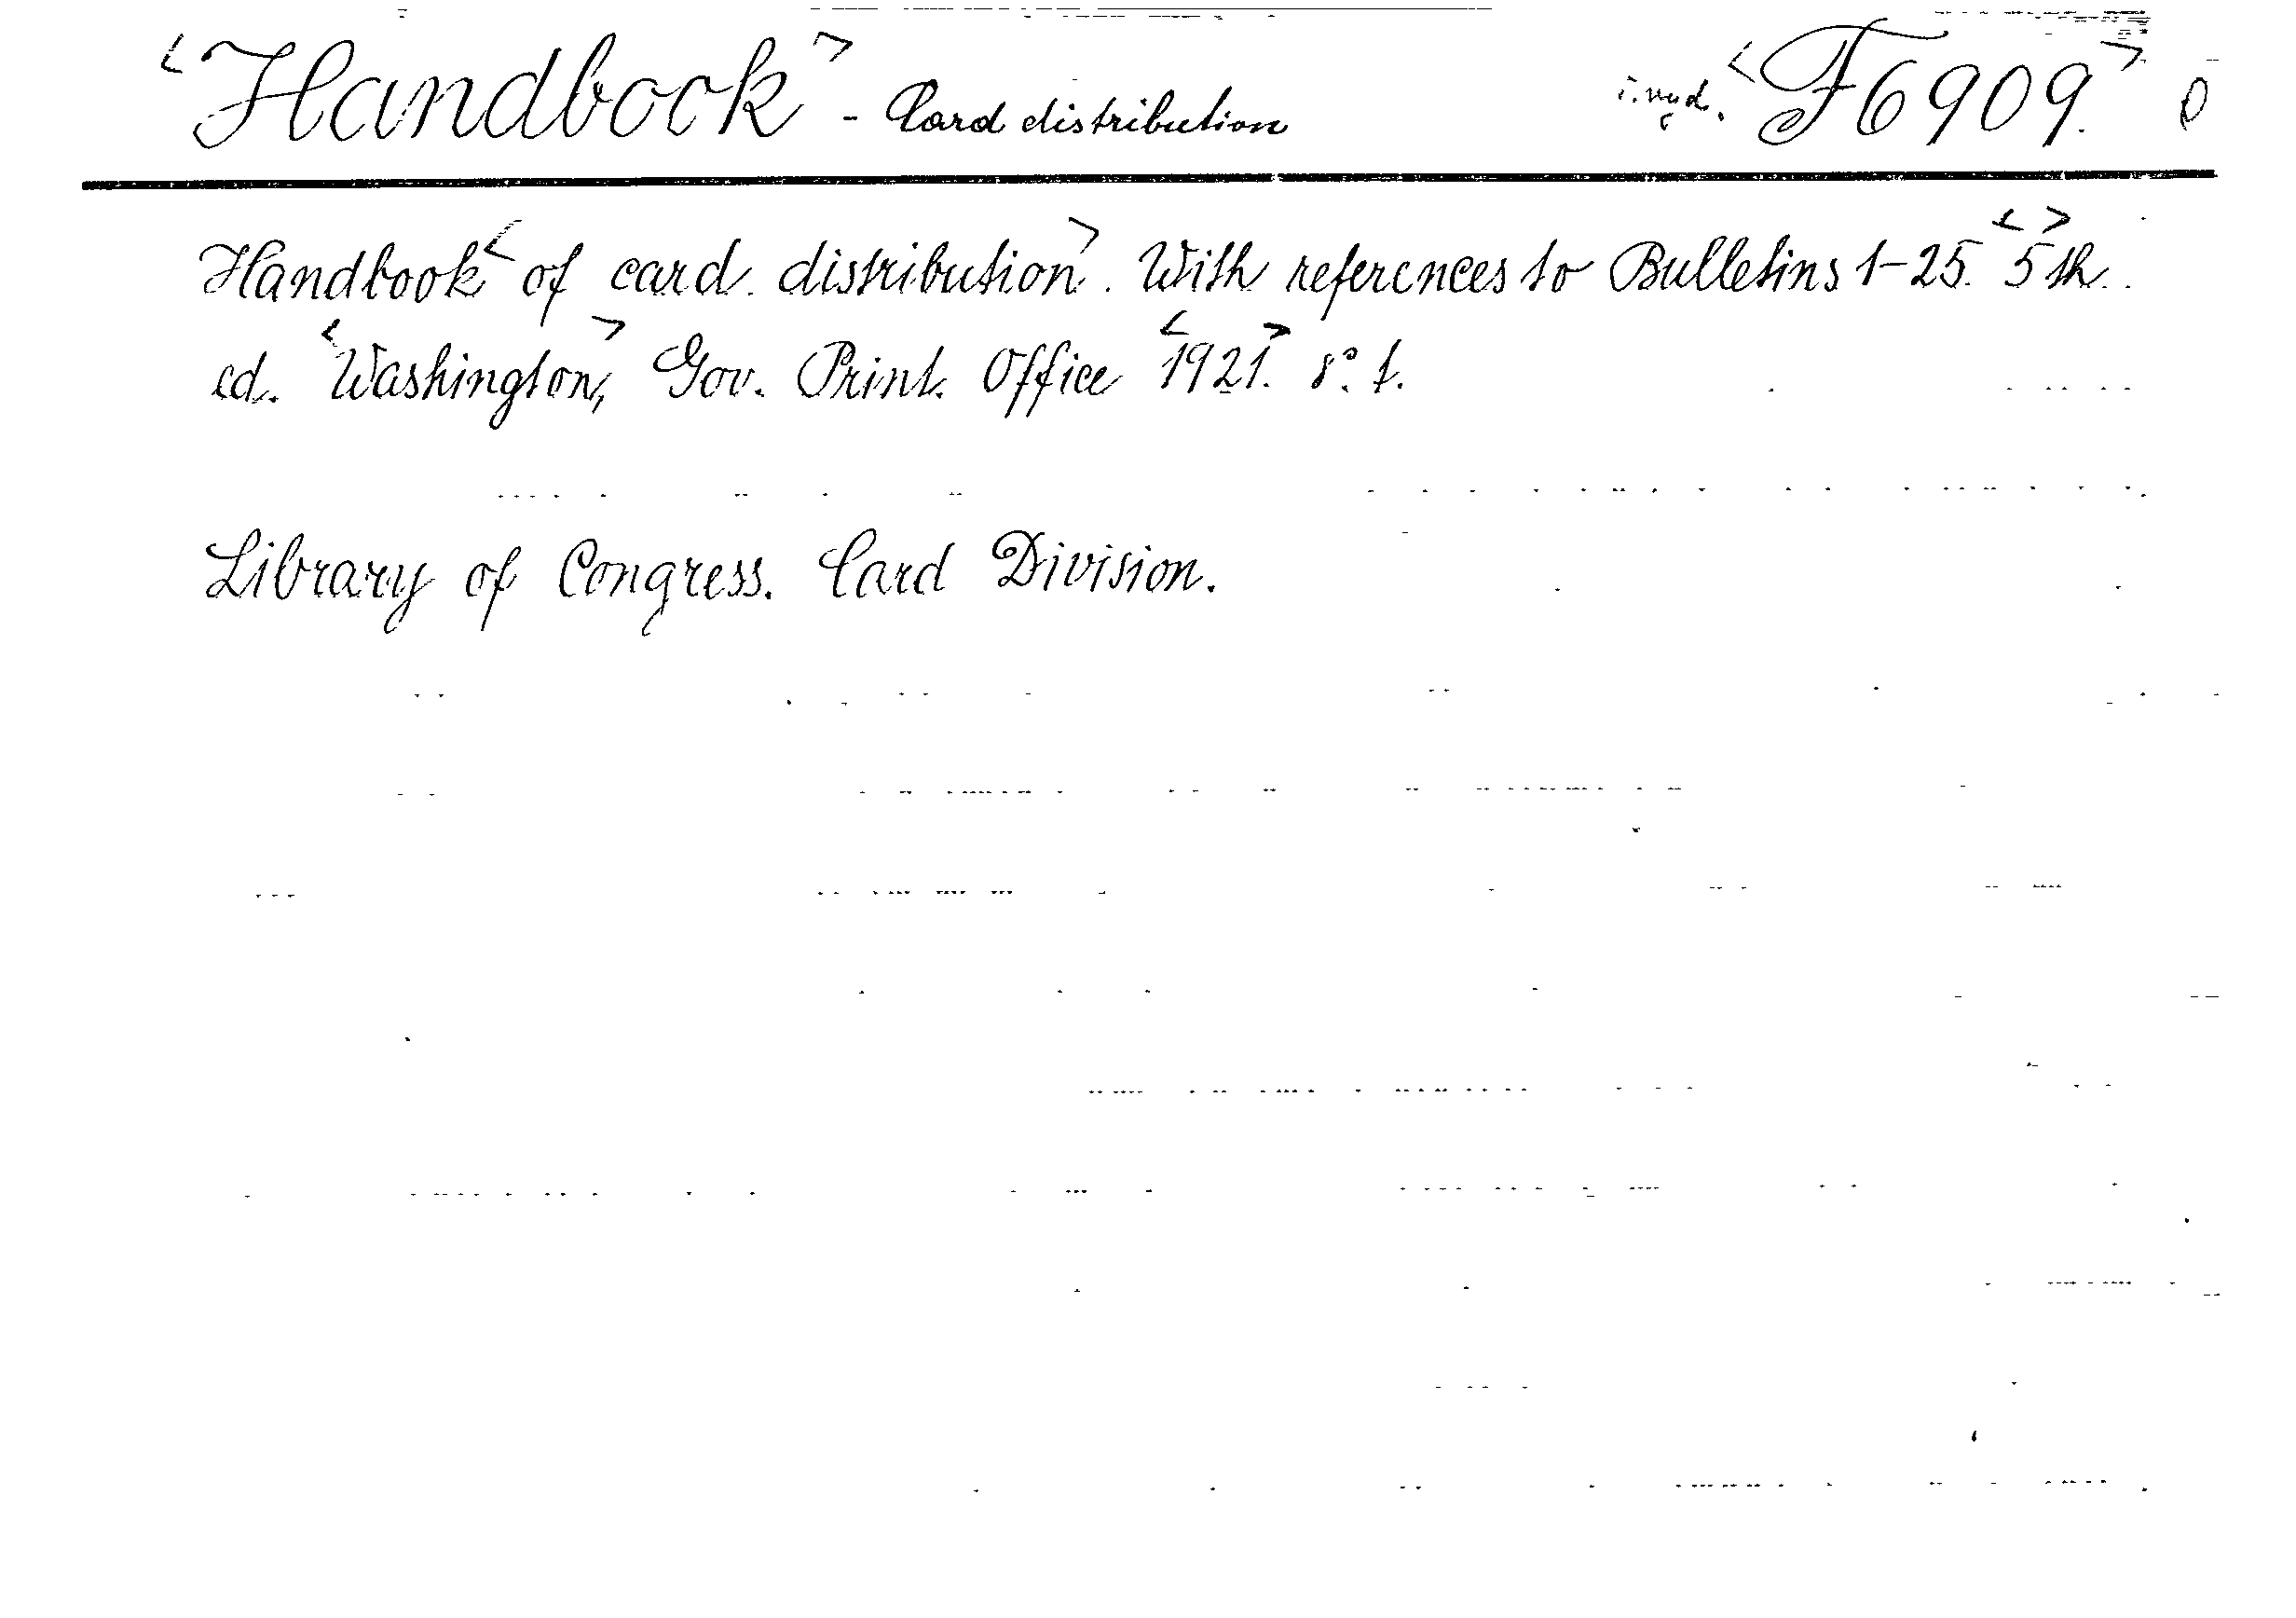 <Handbook> - Card distribution i. vyd. <F6909.>
Handbook <of card distribution>. With references to Bulletins 1-25. <5>th.
ed. <Washington,> Gov. Print. Office <1921.> 8°. f.
Library of Congress. Card Division.